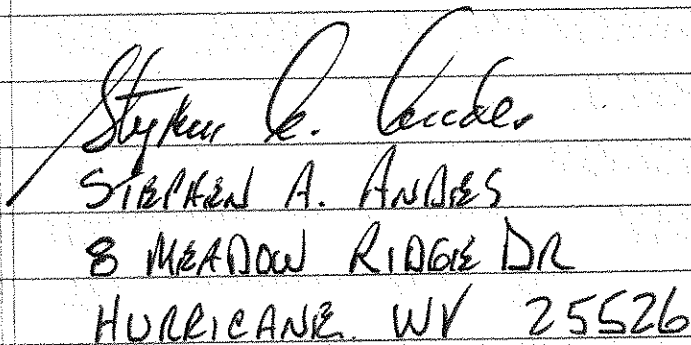 Stephen A. Andes
STEPHEN A. ANDES
8 MEADOW RIDGE DR
HURRICANE. WV 25526